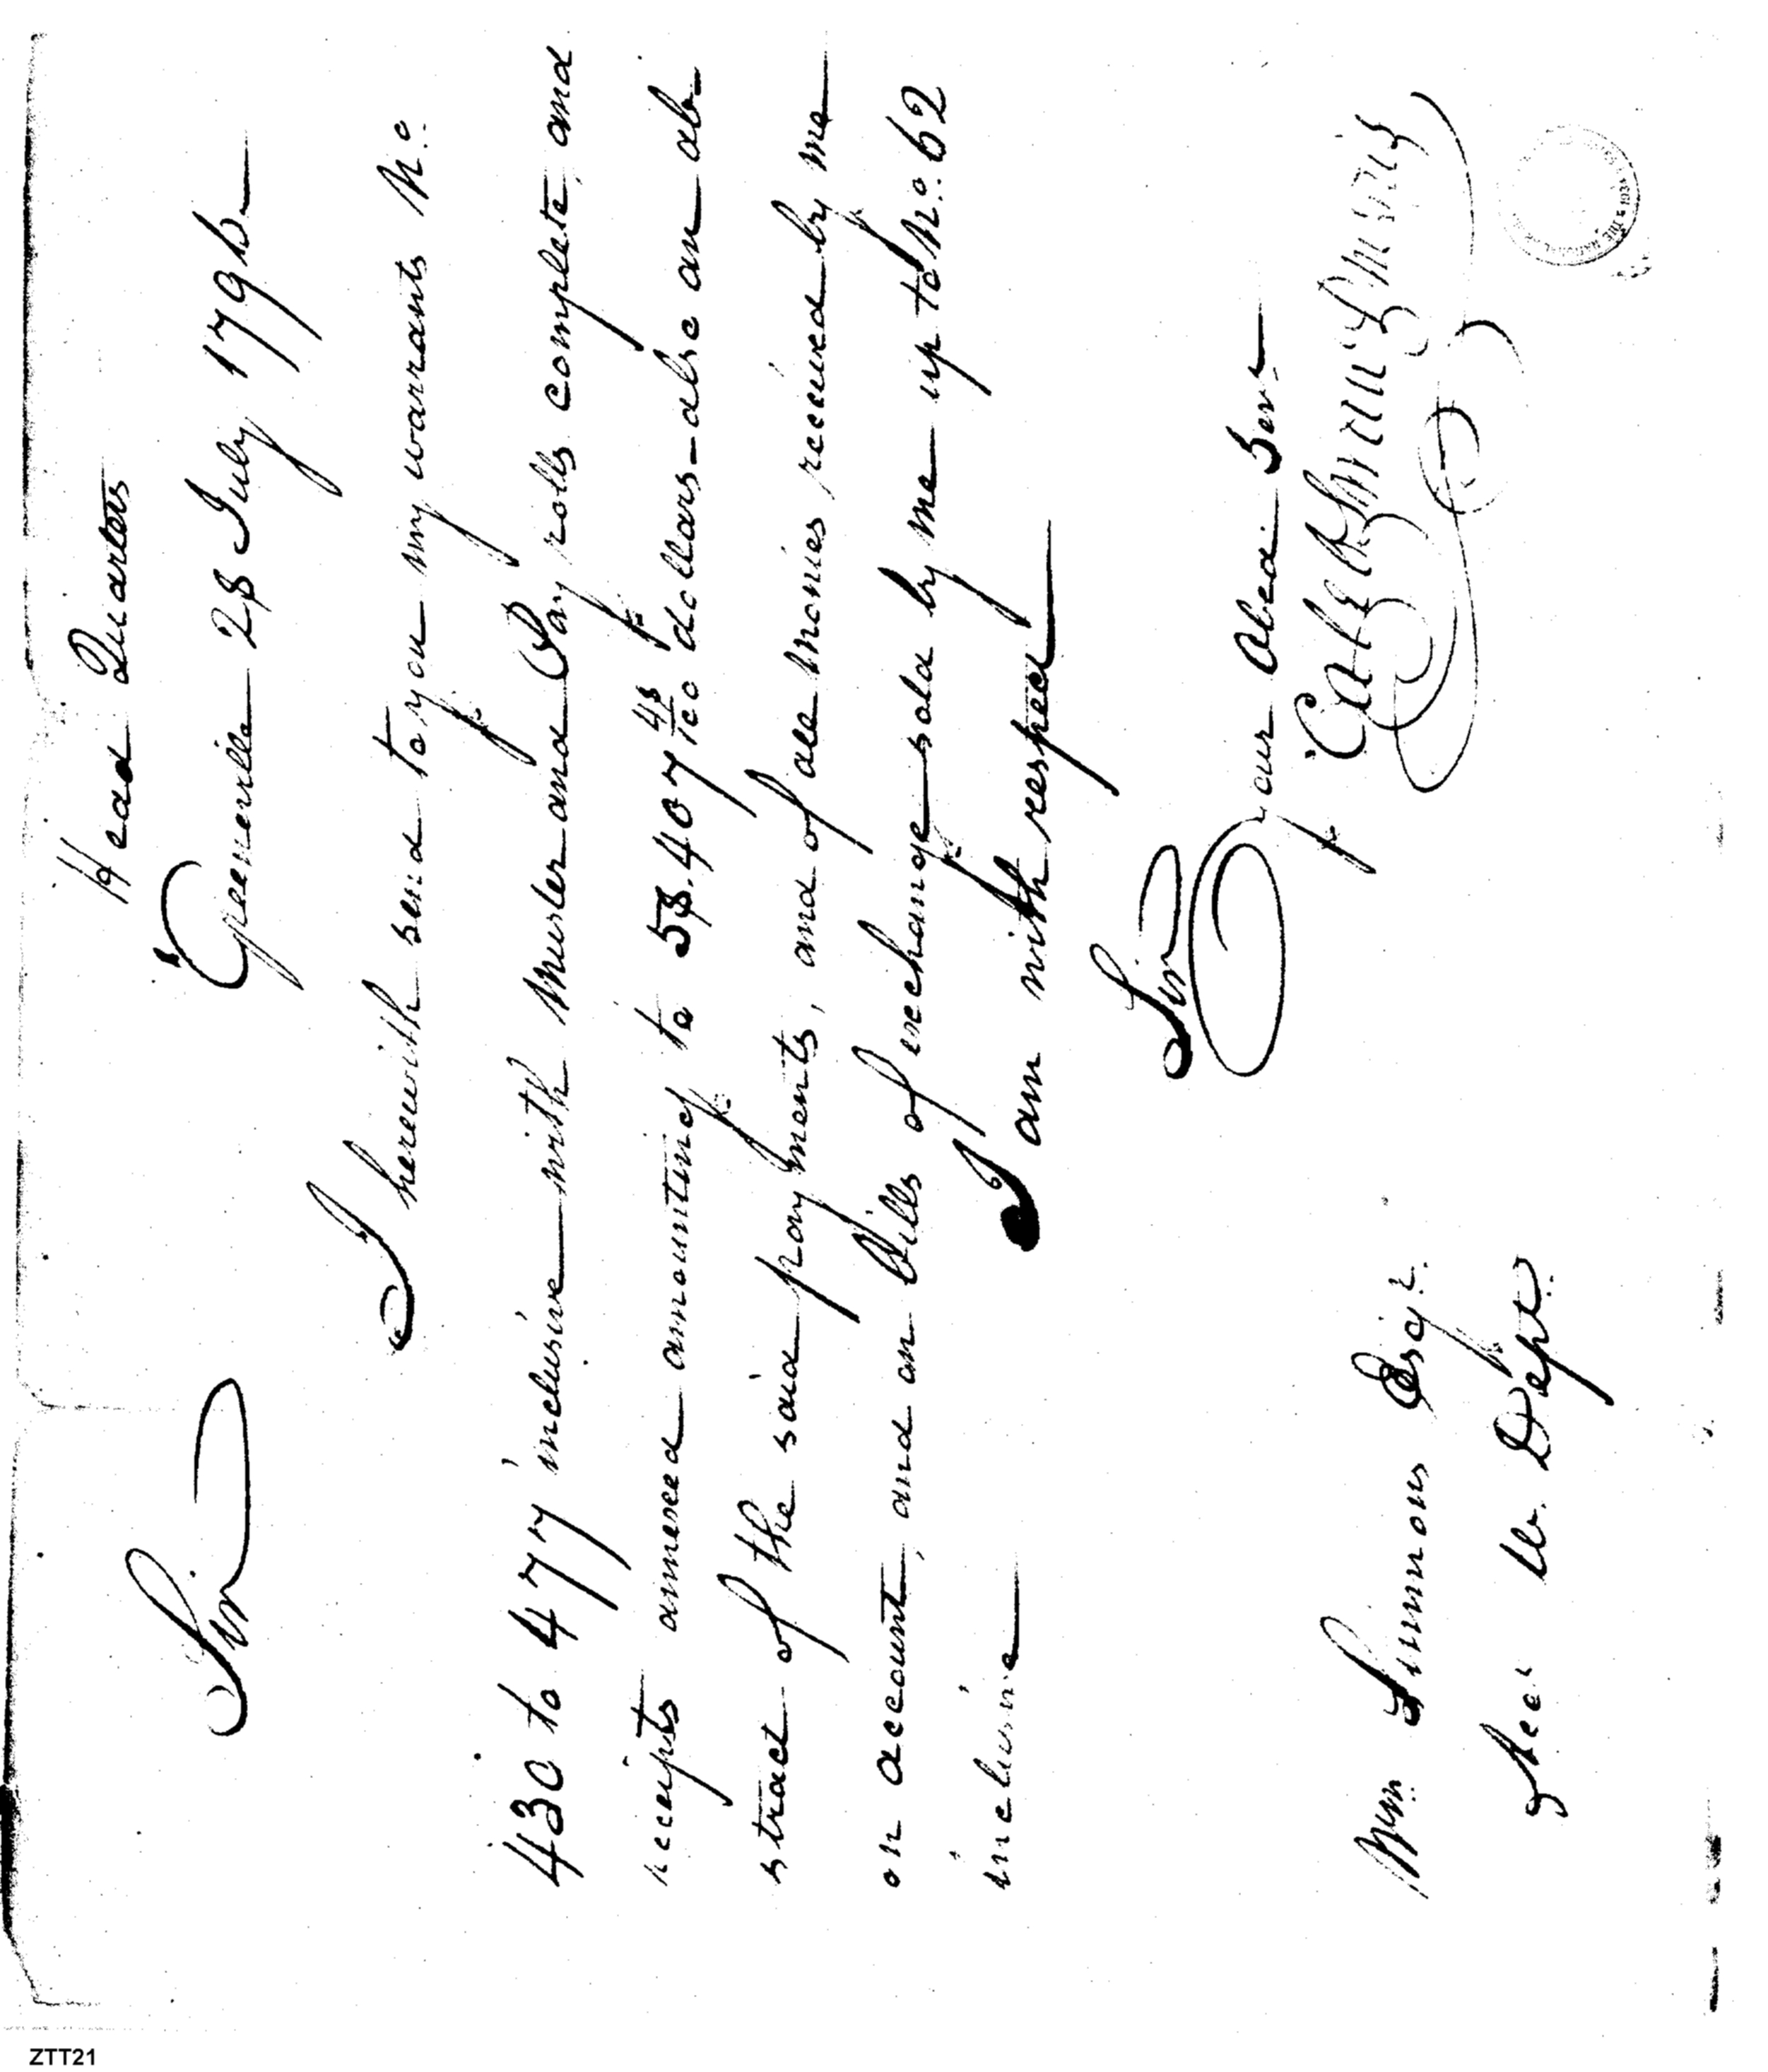 Head Quarters
Greenville 28 July 1795
Sir
I herewith send to you my warrants No.
430 to 477 inclusive with Muster and Pay rolls complete, and
receipts annexed amounting to 58.407 48/100 dollars - also an ab
stract of the said payments, and of all monies received by me
on account, and on Bills of exchange sold by me up to No. 62
inclusive
I am with respect
Sir
Your Obed. Serv
Caleb Swan P.M.U.S.
Wm Simmons Esqr.
Acct W. Dept.
ZTT21